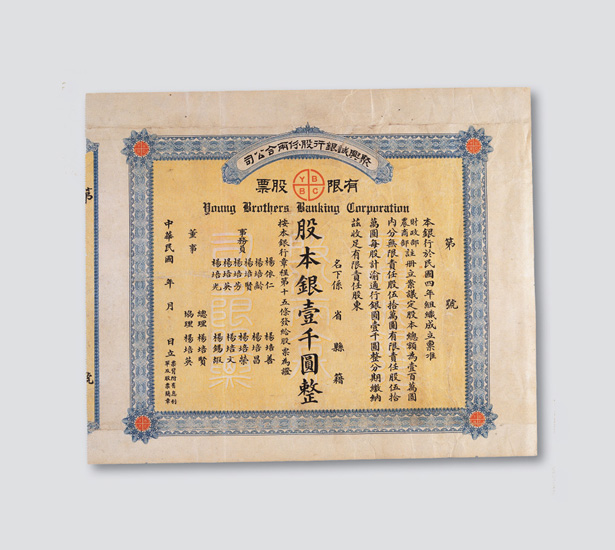 聚興誠銀行股份兩合公司
有限股票
Y B B C
Young Brothers Banking Corporation
第 號
本銀行於民國四年組織成立稟准
財政部農商部註冊立案議定股本總額為壹百萬圓
內分無限責任股伍拾萬圓有限責任股伍拾
萬圓每股計渝通行銀圓壹千圓整分期繳納
茲收足有限責任股東
省 縣 籍
名下係
股本銀壹千圓整
按本銀行章程第十五條發給股票為證
事務員
楊依仁
楊培齡
楊培賢
楊培芳
楊培英
楊培光
楊培善
楊培昌
楊培榮
楊培文
楊錫
董事
總理 楊培賢
協理 楊培英
中華民國 年 月 日立
第
號